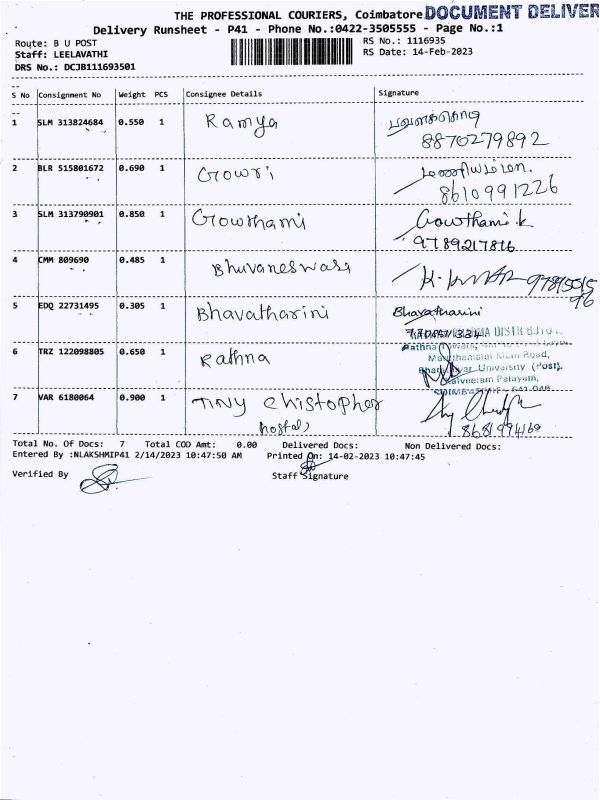 THE PROFESSIONAL COURIERS, Coimbatore DOCUMENT DELIVER
Delivery Runsheet - P41 - Phone No.:0422-3505555 - Page No.:1
Route: B U POST
Staff: LEELAVATHI
DRS No.: DCJB111693501
RS No.: 1116935
RS Date: 14-Feb-2023
S No Consignment No Weight PCS Consignee Details Signature
1 SLM 313824684 0.550 1 Ramya
8870279892
2 BLR 515801672 0.690 1 Gowri
8610991226
3 SLM 313790901 0.850 1 Gowthami Gowthami.k
9789217816
4 CMM 809690 0.485 1 Bhuvaneswari
5 EDQ 22731495 0.305 1 Bhavatharini Bhavatharini
6 TRZ 122098805 0.650 1 Rathna
Road,
University (Post),
Palayam,
7 VAR 6180064 0.900 1 Tiny Chistopher
hostal
Total No. Of Docs: 7 Total COD Amt: 0.00 Delivered Docs: Non Delivered Docs:
Entered By :NLAKSHMIP41 2/14/2023 10:47:50 AM Printed On: 14-02-2023 10:47:45
Verified By Staff Signature